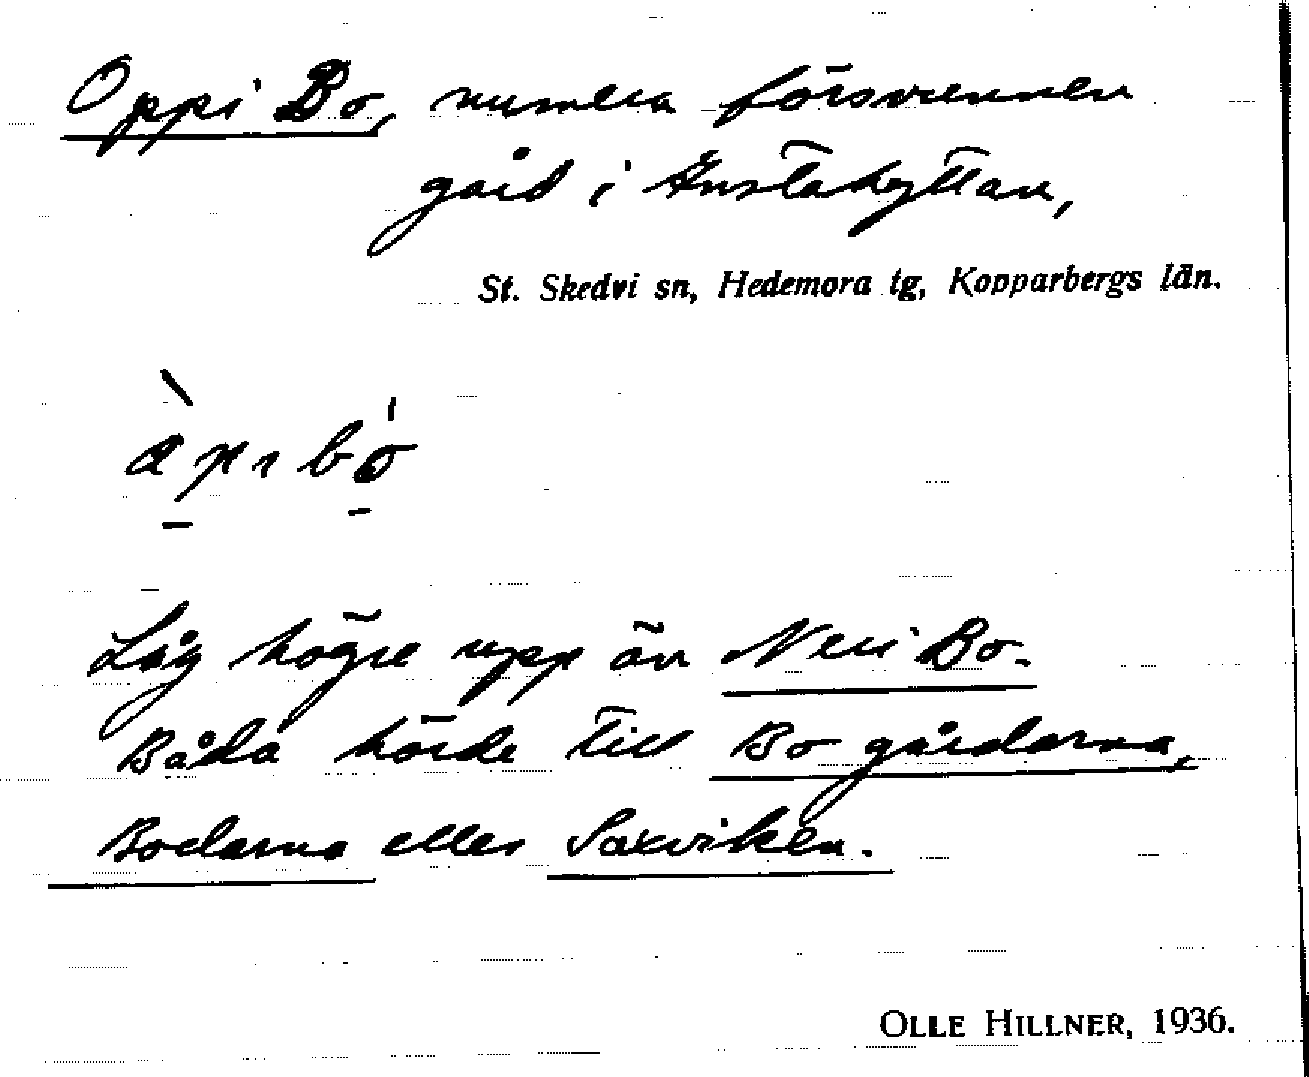 Oppi Bo, numera försvunnen
gård i Enstahyttan,
St. Skedvi sn, Hedemora tg, Kopparbergs län.
Låg högre upp än Neri Bo.
Båda hörde till Bo gårdarna,
Bodarna eller Saxviken.
OLLE HILLNER, 1936.